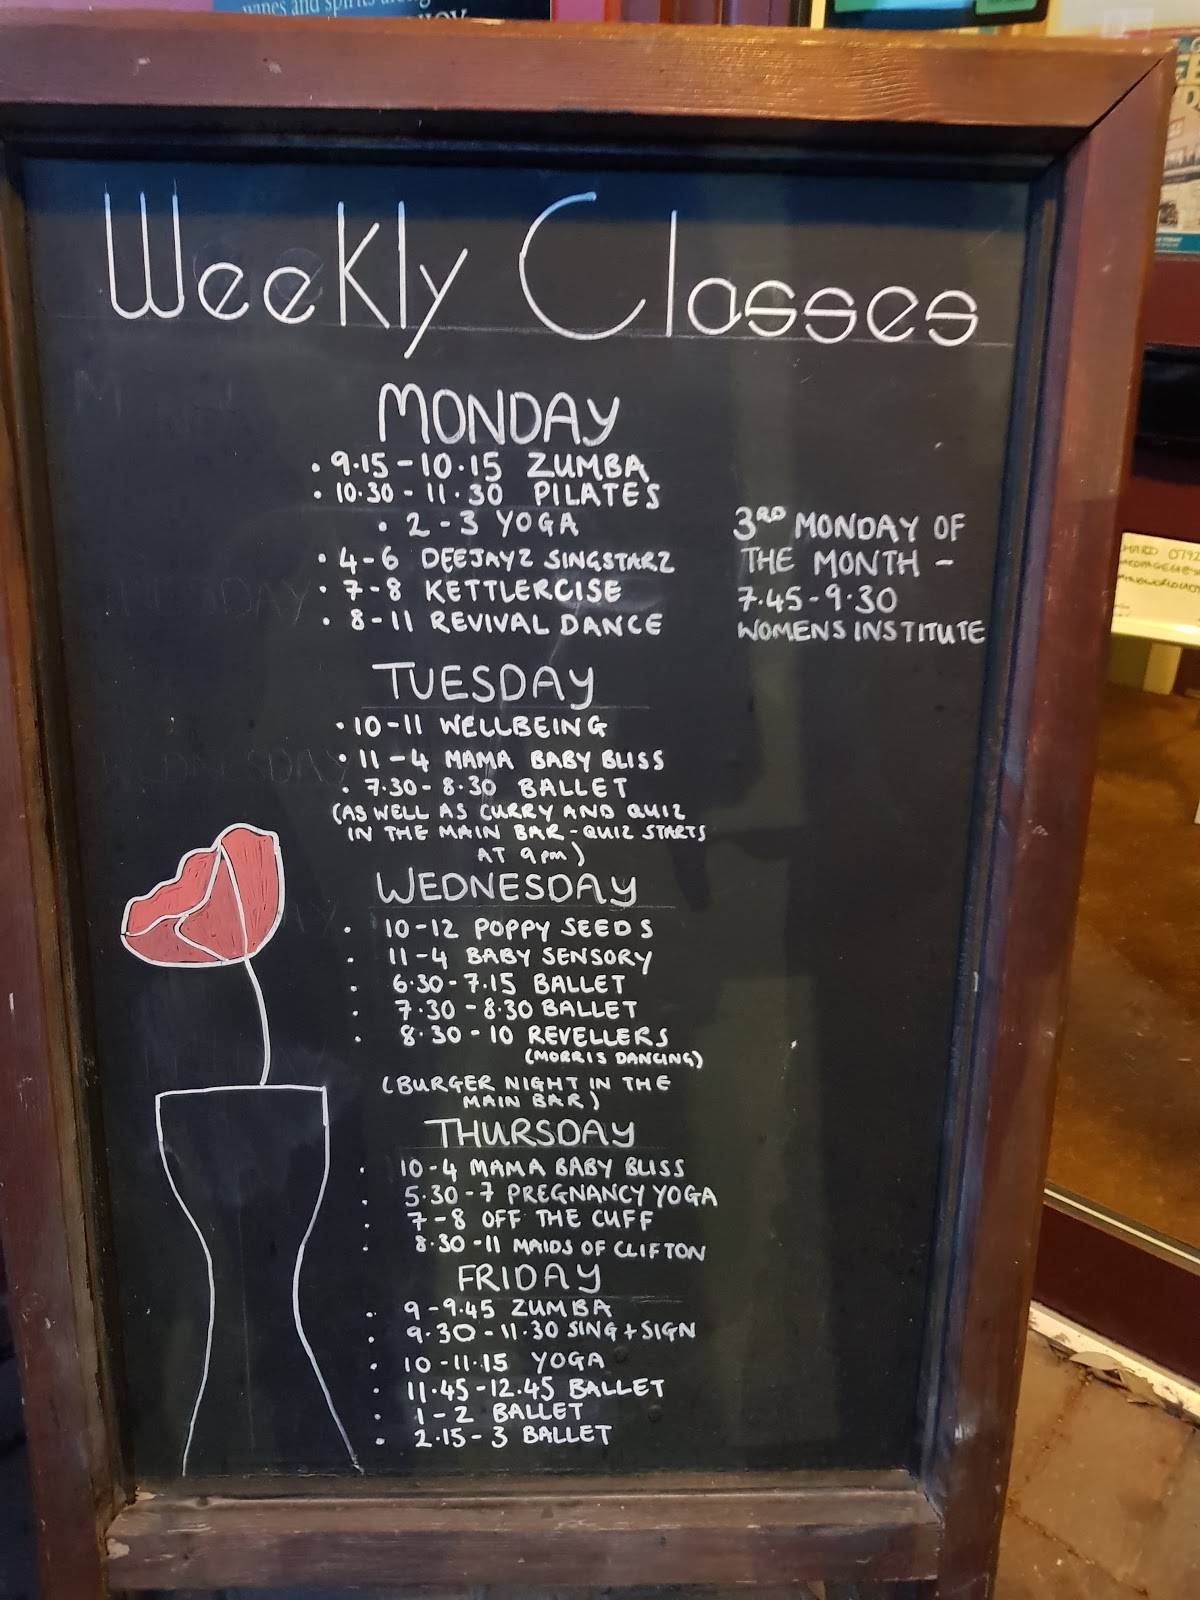 wines and spirits along
Weekly Classes
MONDAY
• 9.15-10.15 ZUMBA
• 10.30 - 11.30 PILATES
• 2 - 3 YOGA
• 4-6 DEEJAYZ SINGSTARZ
• 7-8 KETTLERCISE
• 8-11 REVIVAL DANCE
3RD MONDAY OF
THE MONTH -
7.45-9.30
WOMENS INSTITUTE
TUESDAY
• 10-11 WELLBEING
• 11-4 MAMA BABY BLISS
• 7.30-8.30 BALLET
(AS WELL AS CURRY AND QUIZ
IN THE MAIN BAR - QUIZ STARTS
AT 9pm)
WEDNESDAY
• 10-12 POPPY SEEDS
• 11-4 BABY SENSORY
• 6.30-7.15 BALLET
• 7.30-8.30 BALLET
• 8.30-10 REVELLERS
(MORRIS DANCING)
(BURGER NIGHT IN THE
MAIN BAR)
THURSDAY
• 10-4 MAMA BABY BLISS
• 5.30-7 PREGNANCY YOGA
• 7-8 OFF THE CUFF
• 8.30-11 MAIDS OF CLIFTON
FRIDAY
• 9-9.45 ZUMBA
• 9.30-11.30 SING + SIGN
• 10-11.15 YOGA
• 11.45-12.45 BALLET
• 1-2 BALLET
• 2.15-3 BALLET